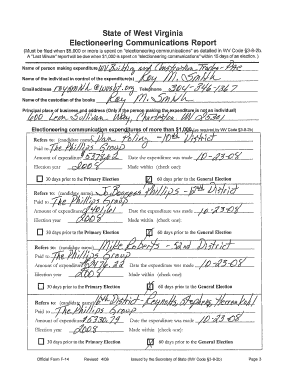 State of West Virginia
Electioneering Communications Report
(Must be filed when $5,000 or more is spent on "electioneering communications" as detailed in WV Code §3-8-2b.
A "Last Minute" report must be due when $1,000 is spent on "electioneering communications" within 15 days of an election.)
Name of person making expenditure WV Building and Construction Trades - PAC
Name of the individual in control of the expenditure(s) Roy M. Smith
Email address Telephone 304-346-1367
Name of the custodian of the books Roy M. Smith
Principal place of business and address (Only if the person making the expenditure is not an individual)
600 Leon Sullivan Way, Charleston WV 25301
Electioneering communication expenditures of more than $1,000 (as required by WV Code §3-8-2b)
Refers to: (candidate name) Dan Poling - 10th District
Paid to The Phillips Group
Amount of expenditure Date the expenditure was made 10-23-08
Election year 2008 Made within (check one):
30 days prior to the Primary Election 60 days prior to the General Election
Refers to: (candidate name) Phillips - District
Paid to The Phillips Group
Amount of expenditure Date the expenditure was made 10-23-08
Election year 2008 Made within (check one):
30 days prior to the Primary Election 60 days prior to the General Election
Refers to: (candidate name) Mike Roberts - 22nd District
Paid to The Phillips Group
Amount of expenditure Date the expenditure was made 10-23-08
Election year 2008 Made within (check one):
30 days prior to the Primary Election 60 days prior to the General Election
Refers to: (candidate name) District Reynolds, Stephens,
Paid to The Phillips Group
Amount of expenditure Date the expenditure was made 10-23-08
Election year 2008 Made within (check one):
30 days prior to the Primary Election 60 days prior to the General Election
Official Form F-14 Revised 4/08 Issued by the Secretary of State (WV Code §3-8-2b) Page 3